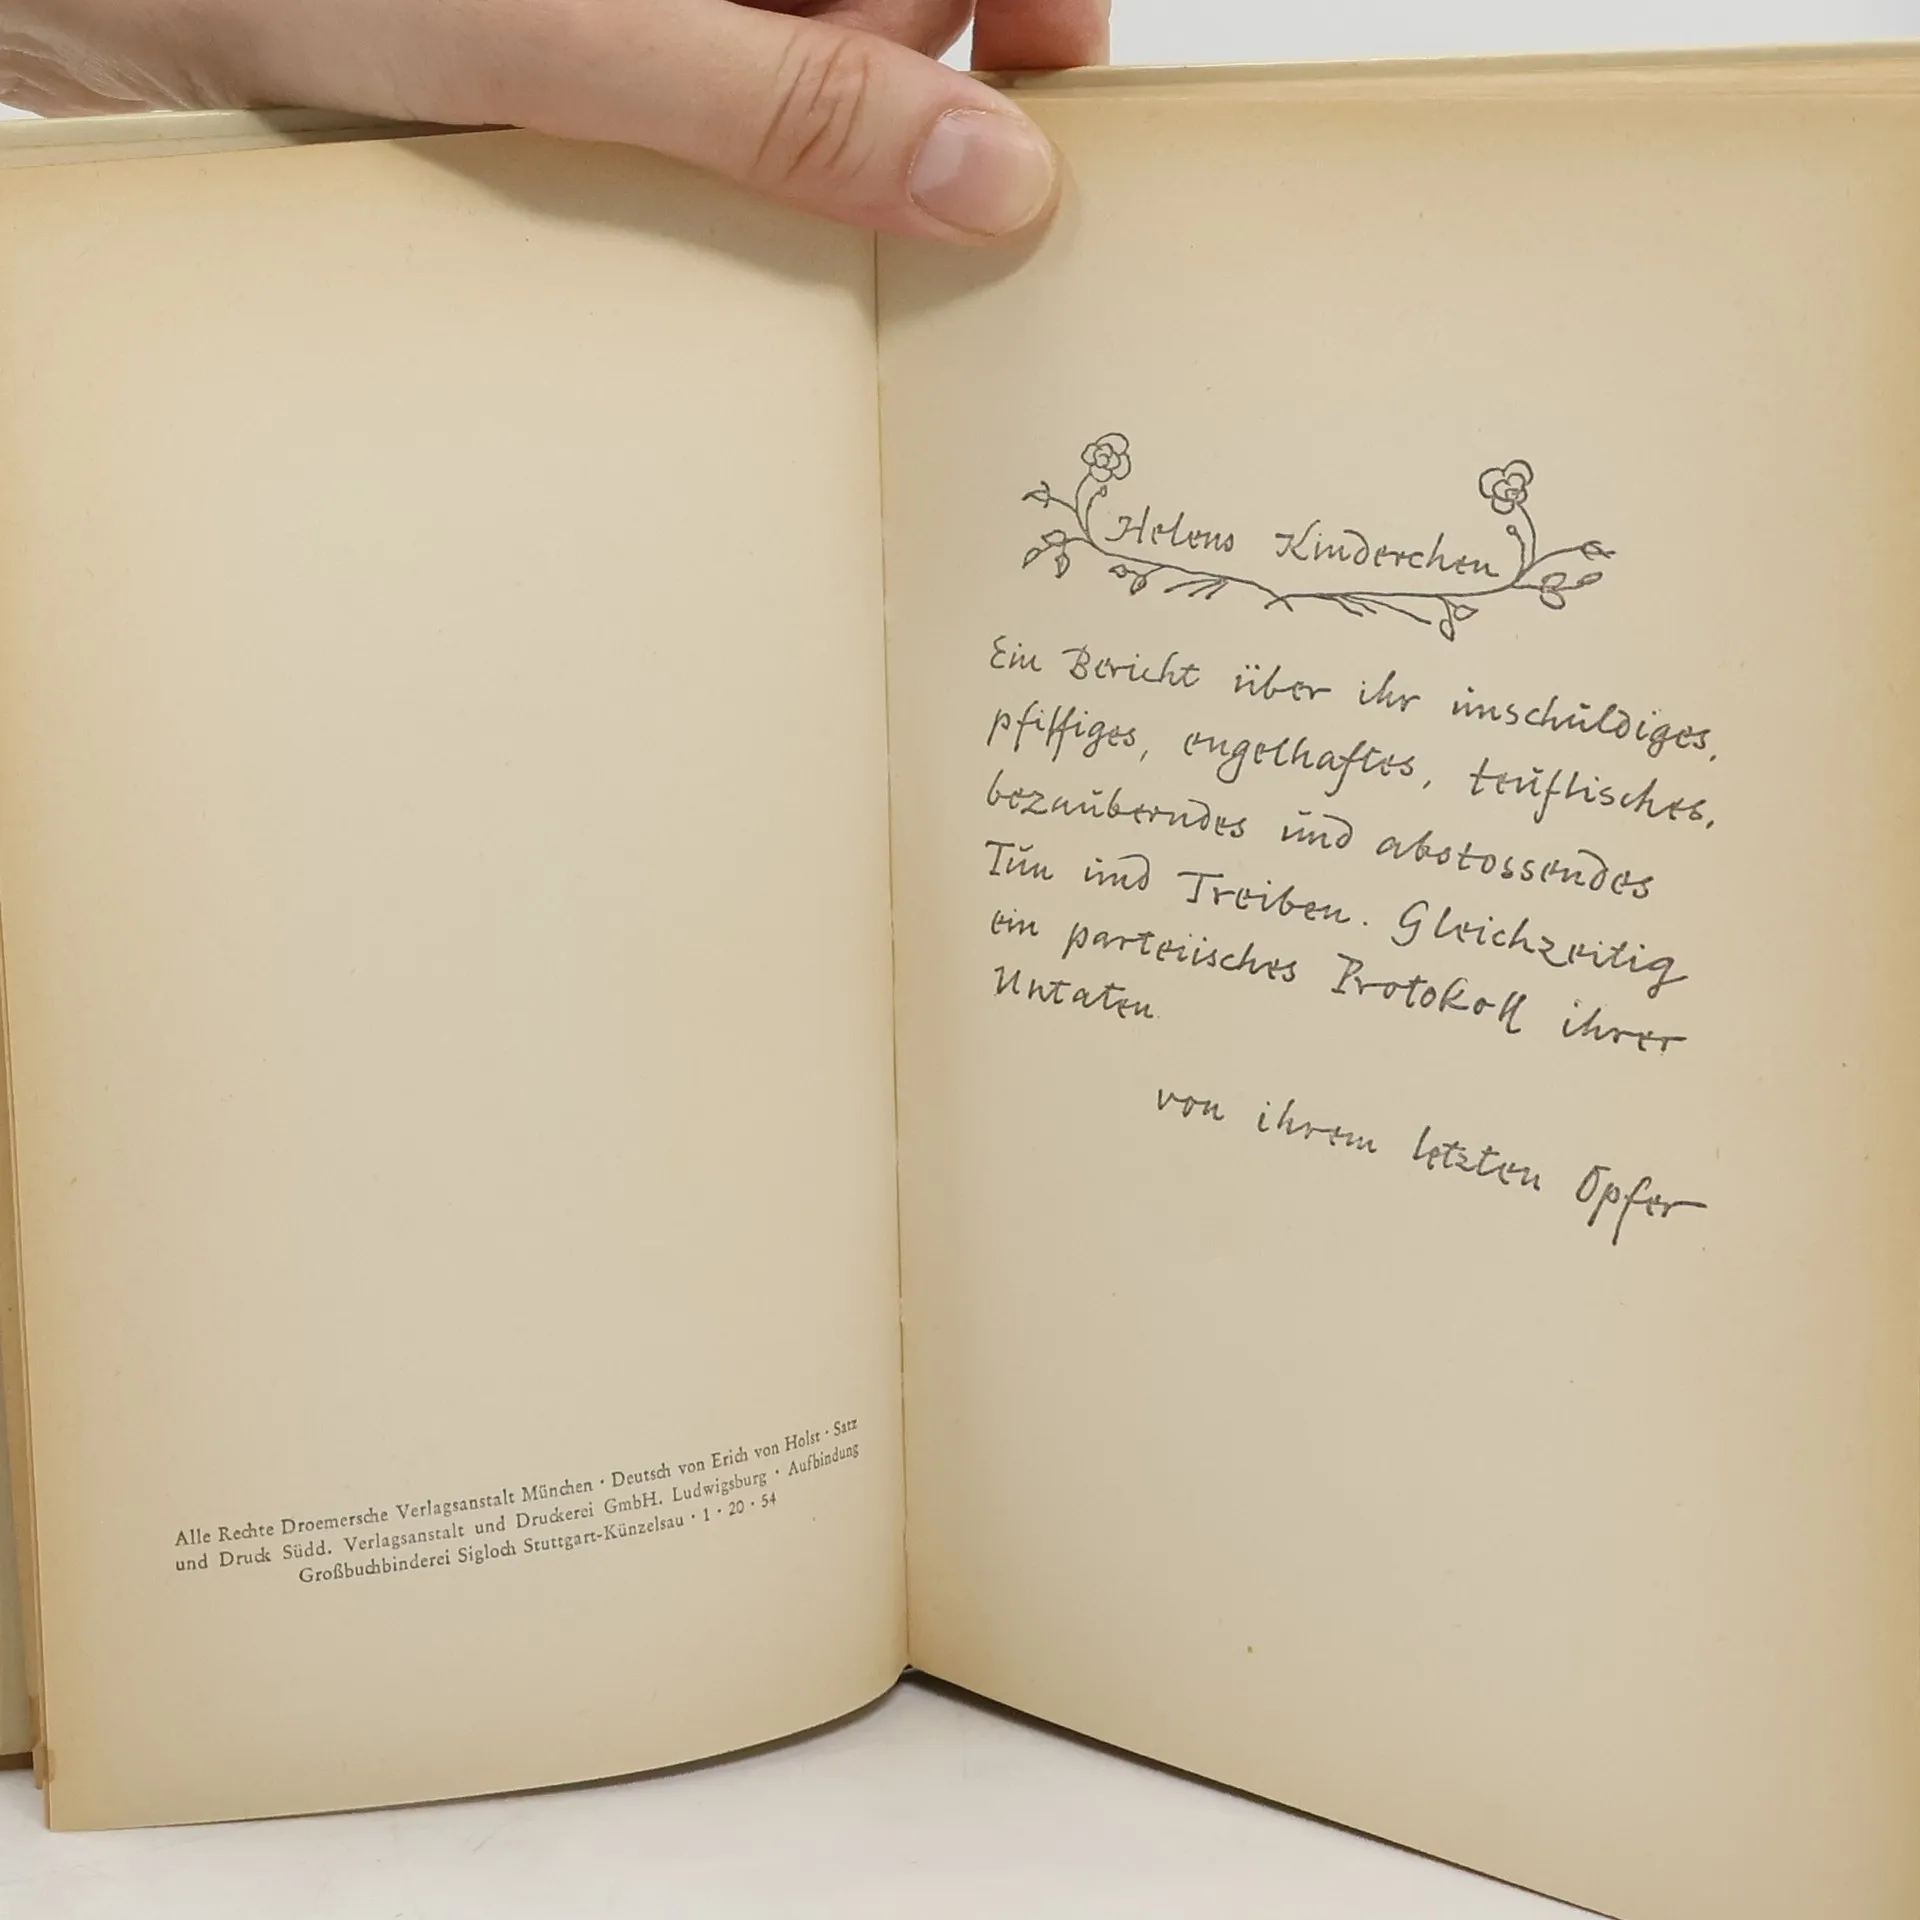 Alle Rechte Droemersche Verlagsanstalt München · Deutsch von Erich von Holst · Satz
und Druck Südd. Verlagsanstalt und Druckerei GmbH. Ludwigsburg · Aufbindung
Großbuchbinderei Sigloch Stuttgart-Künzelsau · 1 · 20 · 54
Helens Kinderchen
Ein Bericht über ihr unschuldiges,
pfiffiges, engelhaftes, teuflisches,
bezauberndes und abstossendes
Tun und Treiben. Gleichzeitig
ein parteiisches Protokoll ihrer
Untaten.
von ihrem letzten Opfer